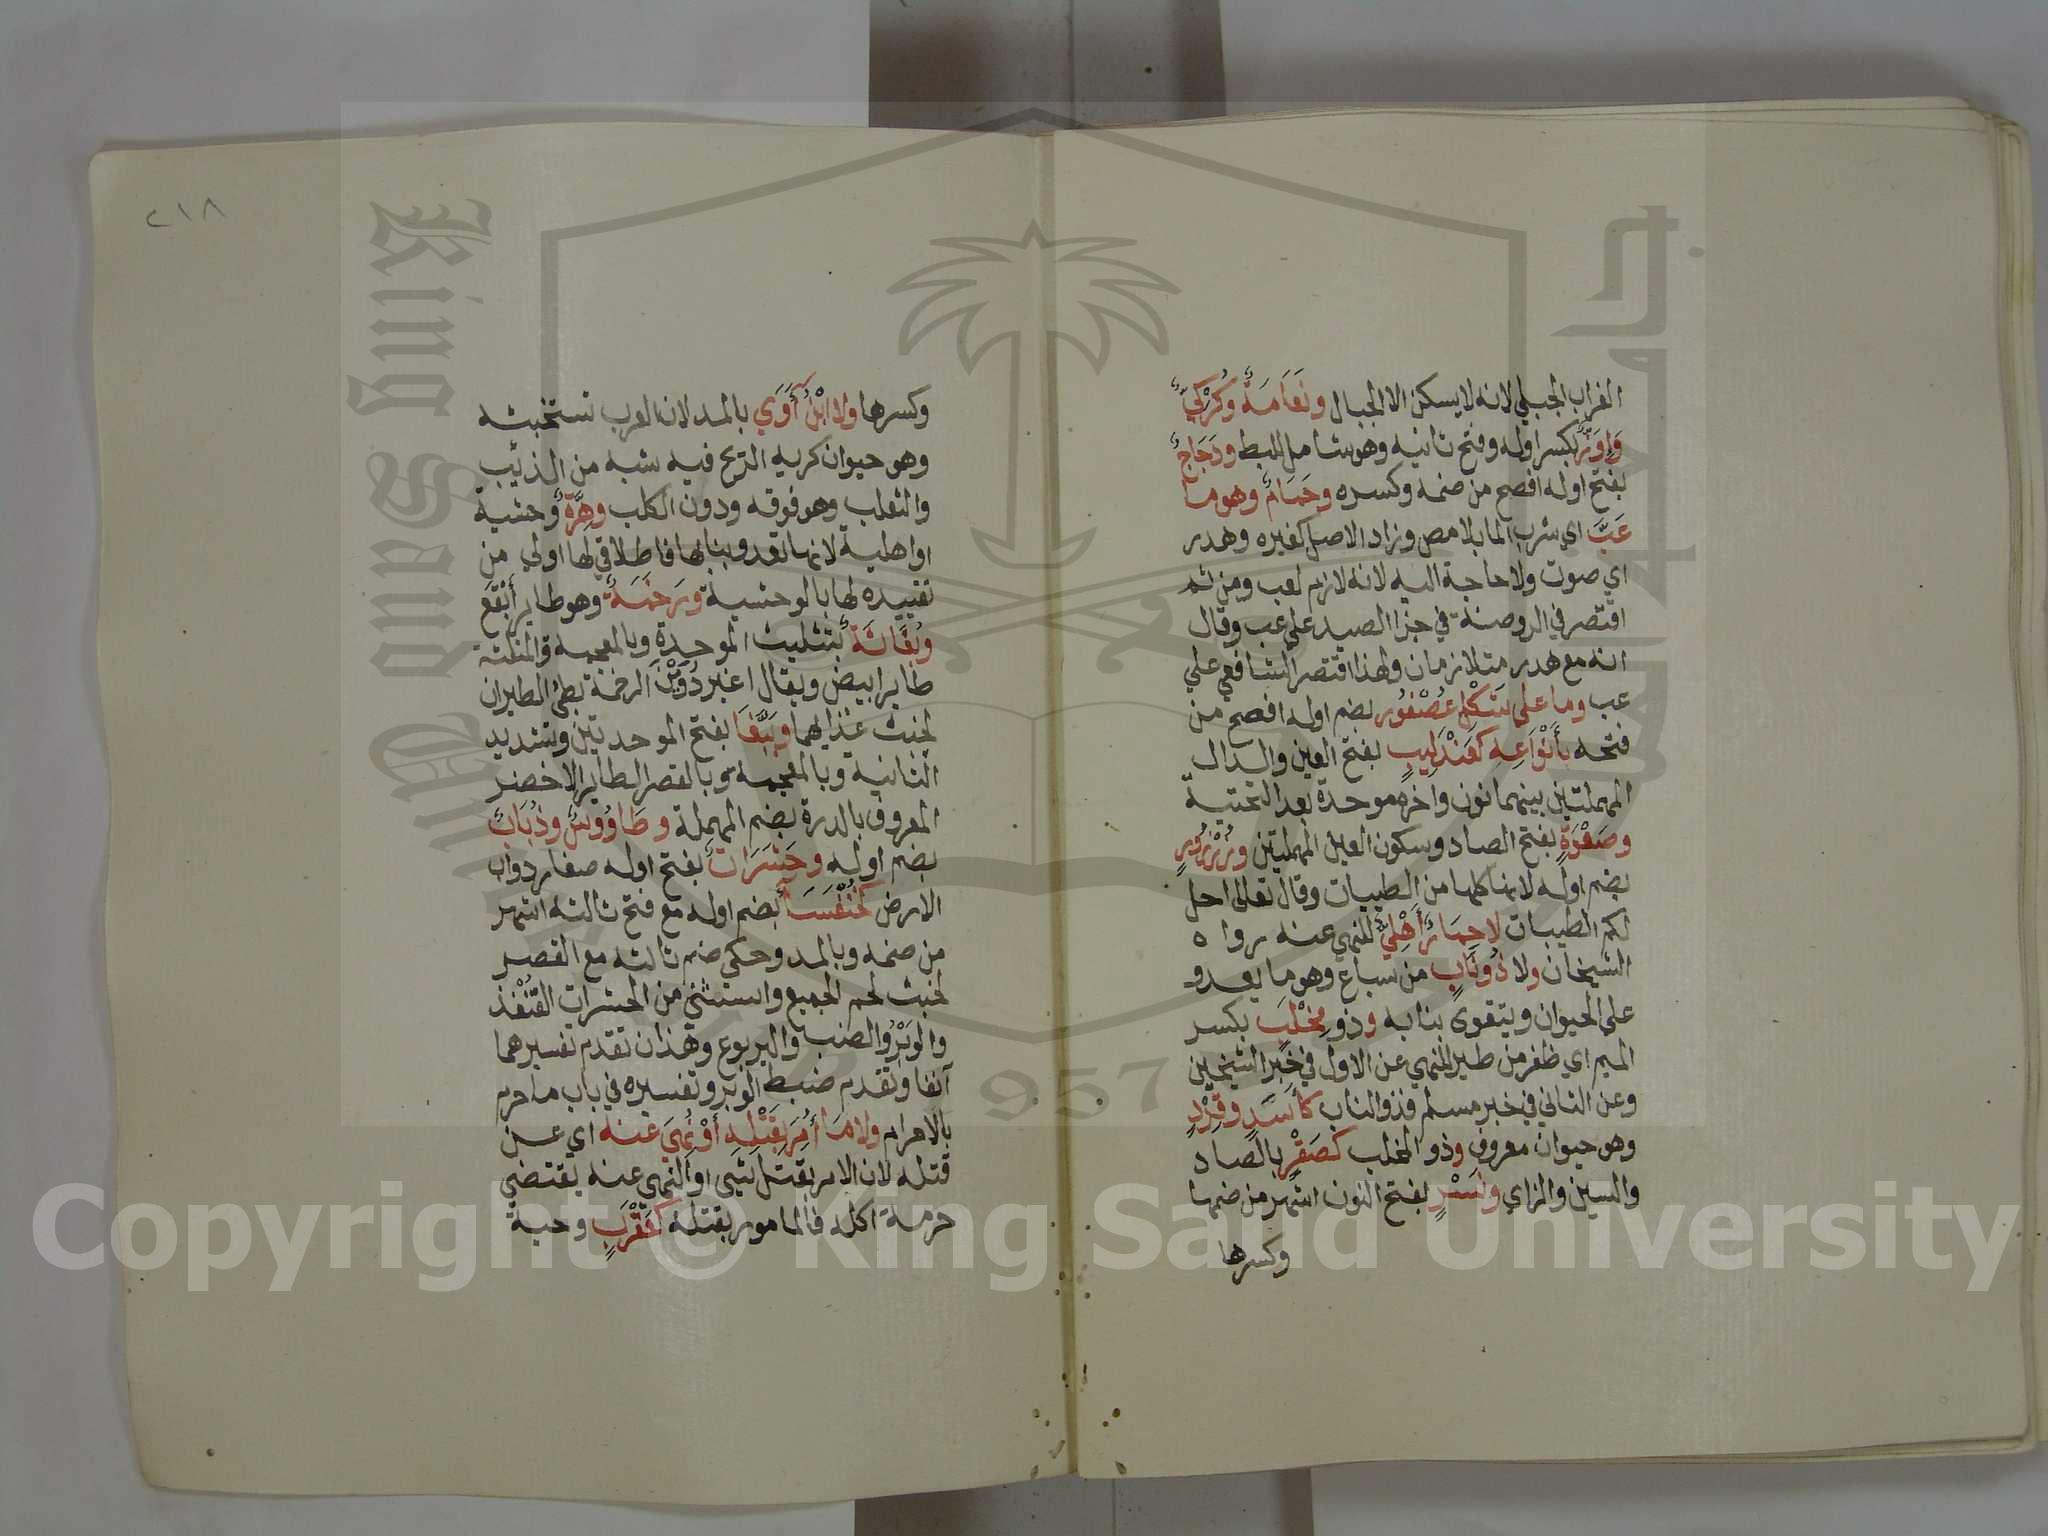 الغراب الجبلي لانه لا يسكن الا الجبال ونَعَامَةٌ وكُرْكِيٌّ
وَإِوَزٌّ بكسر اوله وفتح ثانيه وهو شامل للبط ودَجَاجٌ
بفتح اوله افصح من ضمه وكسره وحَمَامٌ وهو ما
عَبَّ اي شرب الما بلا مص وزاد الاصل كغيره وهدر
اي صوت ولا حاجة اليه لانه لازم لعب ومن ثم
اقتصر في الروضة في جزا الصيد على عب وقال
انه مع هدر متلازمان ولهذا اقتصر الشافعي علي
عب وما على شَكْلِ عُصْفُور بضم اوله افصح من
فتحه بأَنْوَاعِهِ كعَنْدَلِيبٍ بفتح العين والدال
المهملتين بينهما نون واخره موحدة بعد التحتية
وصَعْوَةٍ بفتح الصاد وسكون العين المهملتين وزُرْزُورٍ
بضم اوله لانها كلها من الطيبات وقال تعالى احل
لكم الطيبات لا حِمَارٌ أَهْلِيٌّ للنهي عنه رواه
الشيخان ولا ذُو نَابٍ من سباع وهو ما يعدو
على الحيوان ويتقوى بنابه وذو مِخْلَبٍ بكسر
الميم اي ظفر من طير للنهي عن الاول في خبر الشيخين
وعن الثاني في خبر مسلم فذو الناب كأَسَدٍ وقِرْدٍ
وهو حيوان معروف وذو المخلب كصَقْرٍ بالصاد
والسين والزاي ونَسْرٍ بفتح النون اشهر من ضمها
وكسرها
٢١٨
وكسرها ولا ابْنُ آوَي بالمد لان العرب تستخبثه
وهو حيوان كريه الريح فيه شبه من الذيب
والثعلب وهو فوقه ودون الكلب وهِرَّةٌ وحشية
او اهلية لانها تعدو بنابها فاطلاقي لها اولي من
تقييده لها بالوحشية ورَخَمَةٌ وهو طاير أَبْقَع
وبُغَاثَةٌ بتثليث الموحدة وبالمعجمة والمثلثة
طاير ابيض ويقال اغبر دُوَيْنَ الرخمة بطئ الطيران
لخبث غذايهما وبَبَّغَا بفتح الموحدتين وتشديد
الثانية وبالمعجمة وبالقصر الطاير الاخضر
المعروف بالدرة بضم المهملة وطَاوُوسٌ وذُبَابٌ
بضم اوله وحَشَرَاتٌ بفتح اوله صغار دواب
الارض كخُنْفَسَاء بضم اوله مع فتح ثالثه اشهر
من ضمه وبالمد وحكي ضم ثالثه مع القصر
لخبث لحم الجميع واستثني من الحشرات القُنْفُذ
والوَبْرُ والضب واليربوع وهذان تقدم تفسيرهما
آنفا وتقدم ضبط الوبر وتفسيره في باب ما حرم
بالاحرام ولا مَا أُمِرَ بِقَتْلِهِ أَوْ نُهِيَ عَنْهُ اي عن
قتله لان الامر بقتل شي او النهي عنه يقتضي
حرمة اكله فالمامور بقتله كعَقْرَبٍ وحية
King Saud University
1957
Copyright © King Saud University